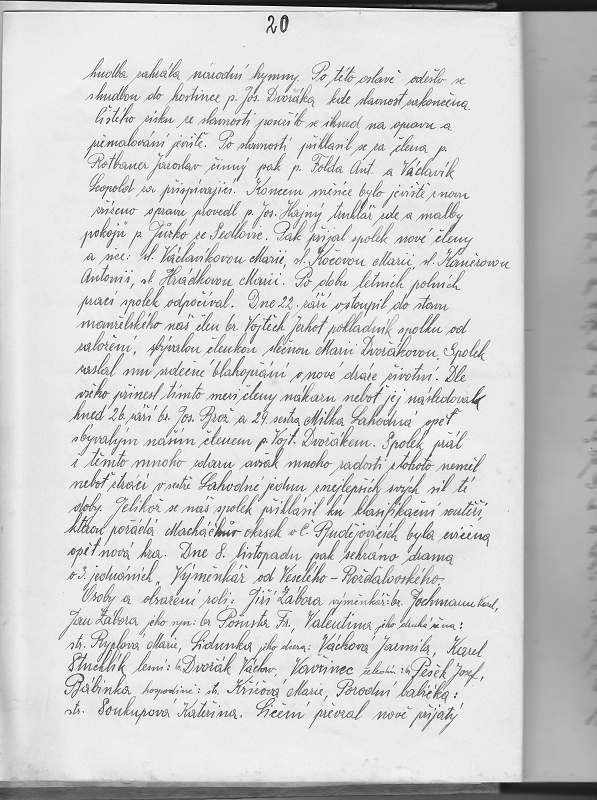 20
hudba zahrála národní hymny. Po této oslavě odešlo se
s hudbou do hostince p. Jos. Dvořáka kde slavnost zakončena.
Čistého zisku ze slavnosti použilo se ihned na opravu a
přemalování jeviště. Po slavnosti přihlásil se za člena p.
Rotbauer Jaroslav činný pak p. Folda Ant. a Václavík
Leopold za přispívající. Koncem měsíce bylo jeviště znovu
zřízeno opravu provedl p. Jos. Hajný truhlář zde a malby
pokojů p. Jůzko ze Sedlbvic. Pak přijal spolek nové členy
a sice: sl. Václavíkovou Marii, sl. Kočovou Marii, sl. Klančovou
Antonii, sl. Hrádkovou Marii. Po dobu letních polních
prací spolek odpočíval. Dne 22. září vstoupil do stavu
manželského náš člen br. Vojtěch Jerhot pokladník spolku od
založení, s bývalou členkou slečnou Marii Dvořákovou. Spolek
zaslal mu srdečné blahopřání v nové dráze životní. Dle
všeho přinesl tímto mezi členy nákazu neboť jej následovali
hned 26. září br. Jos. Brož a 29. sestra Milka Lahodná opět
s bývalým naším členem p. Vojt. Dvořákem. Spolek přál
i těmto mnoho zdaru avšak mnoho radosti z tohoto neměl
neboť ztrácí v sestře Lahodné jednu z nejlepších svých sil té
doby. Jelikož se náš spolek přihlásil ku klasifikační soutěži,
kterou pořádá Macháčkův okrsek v Č. Budějovicích byla cvičena
opět nová hra. Dne 8. listopadu pak sehráno drama
o 3. jednáních „Výměnkář od Veselého – Rožďálovského.
Osoby a obsazení rolí: Jiří Zábora výměnkář: br. Jochmann Karel,
Jan Zábora jeho syn: br Pomsta Fr., Valentina jeho druhá žena:
str. Ryplová Marie, Lidunka jeho dcera: Váchová Jarmila, Karel
Stuchlík lesní: br. Dvořák Václav, Vavřinec čeledín: br. Pešek Josef,
Bábinka hospodyně: str. Křížová Marie, Porodní babička:
str. Soukupová Kateřina. Líčení převzal nově přijatý